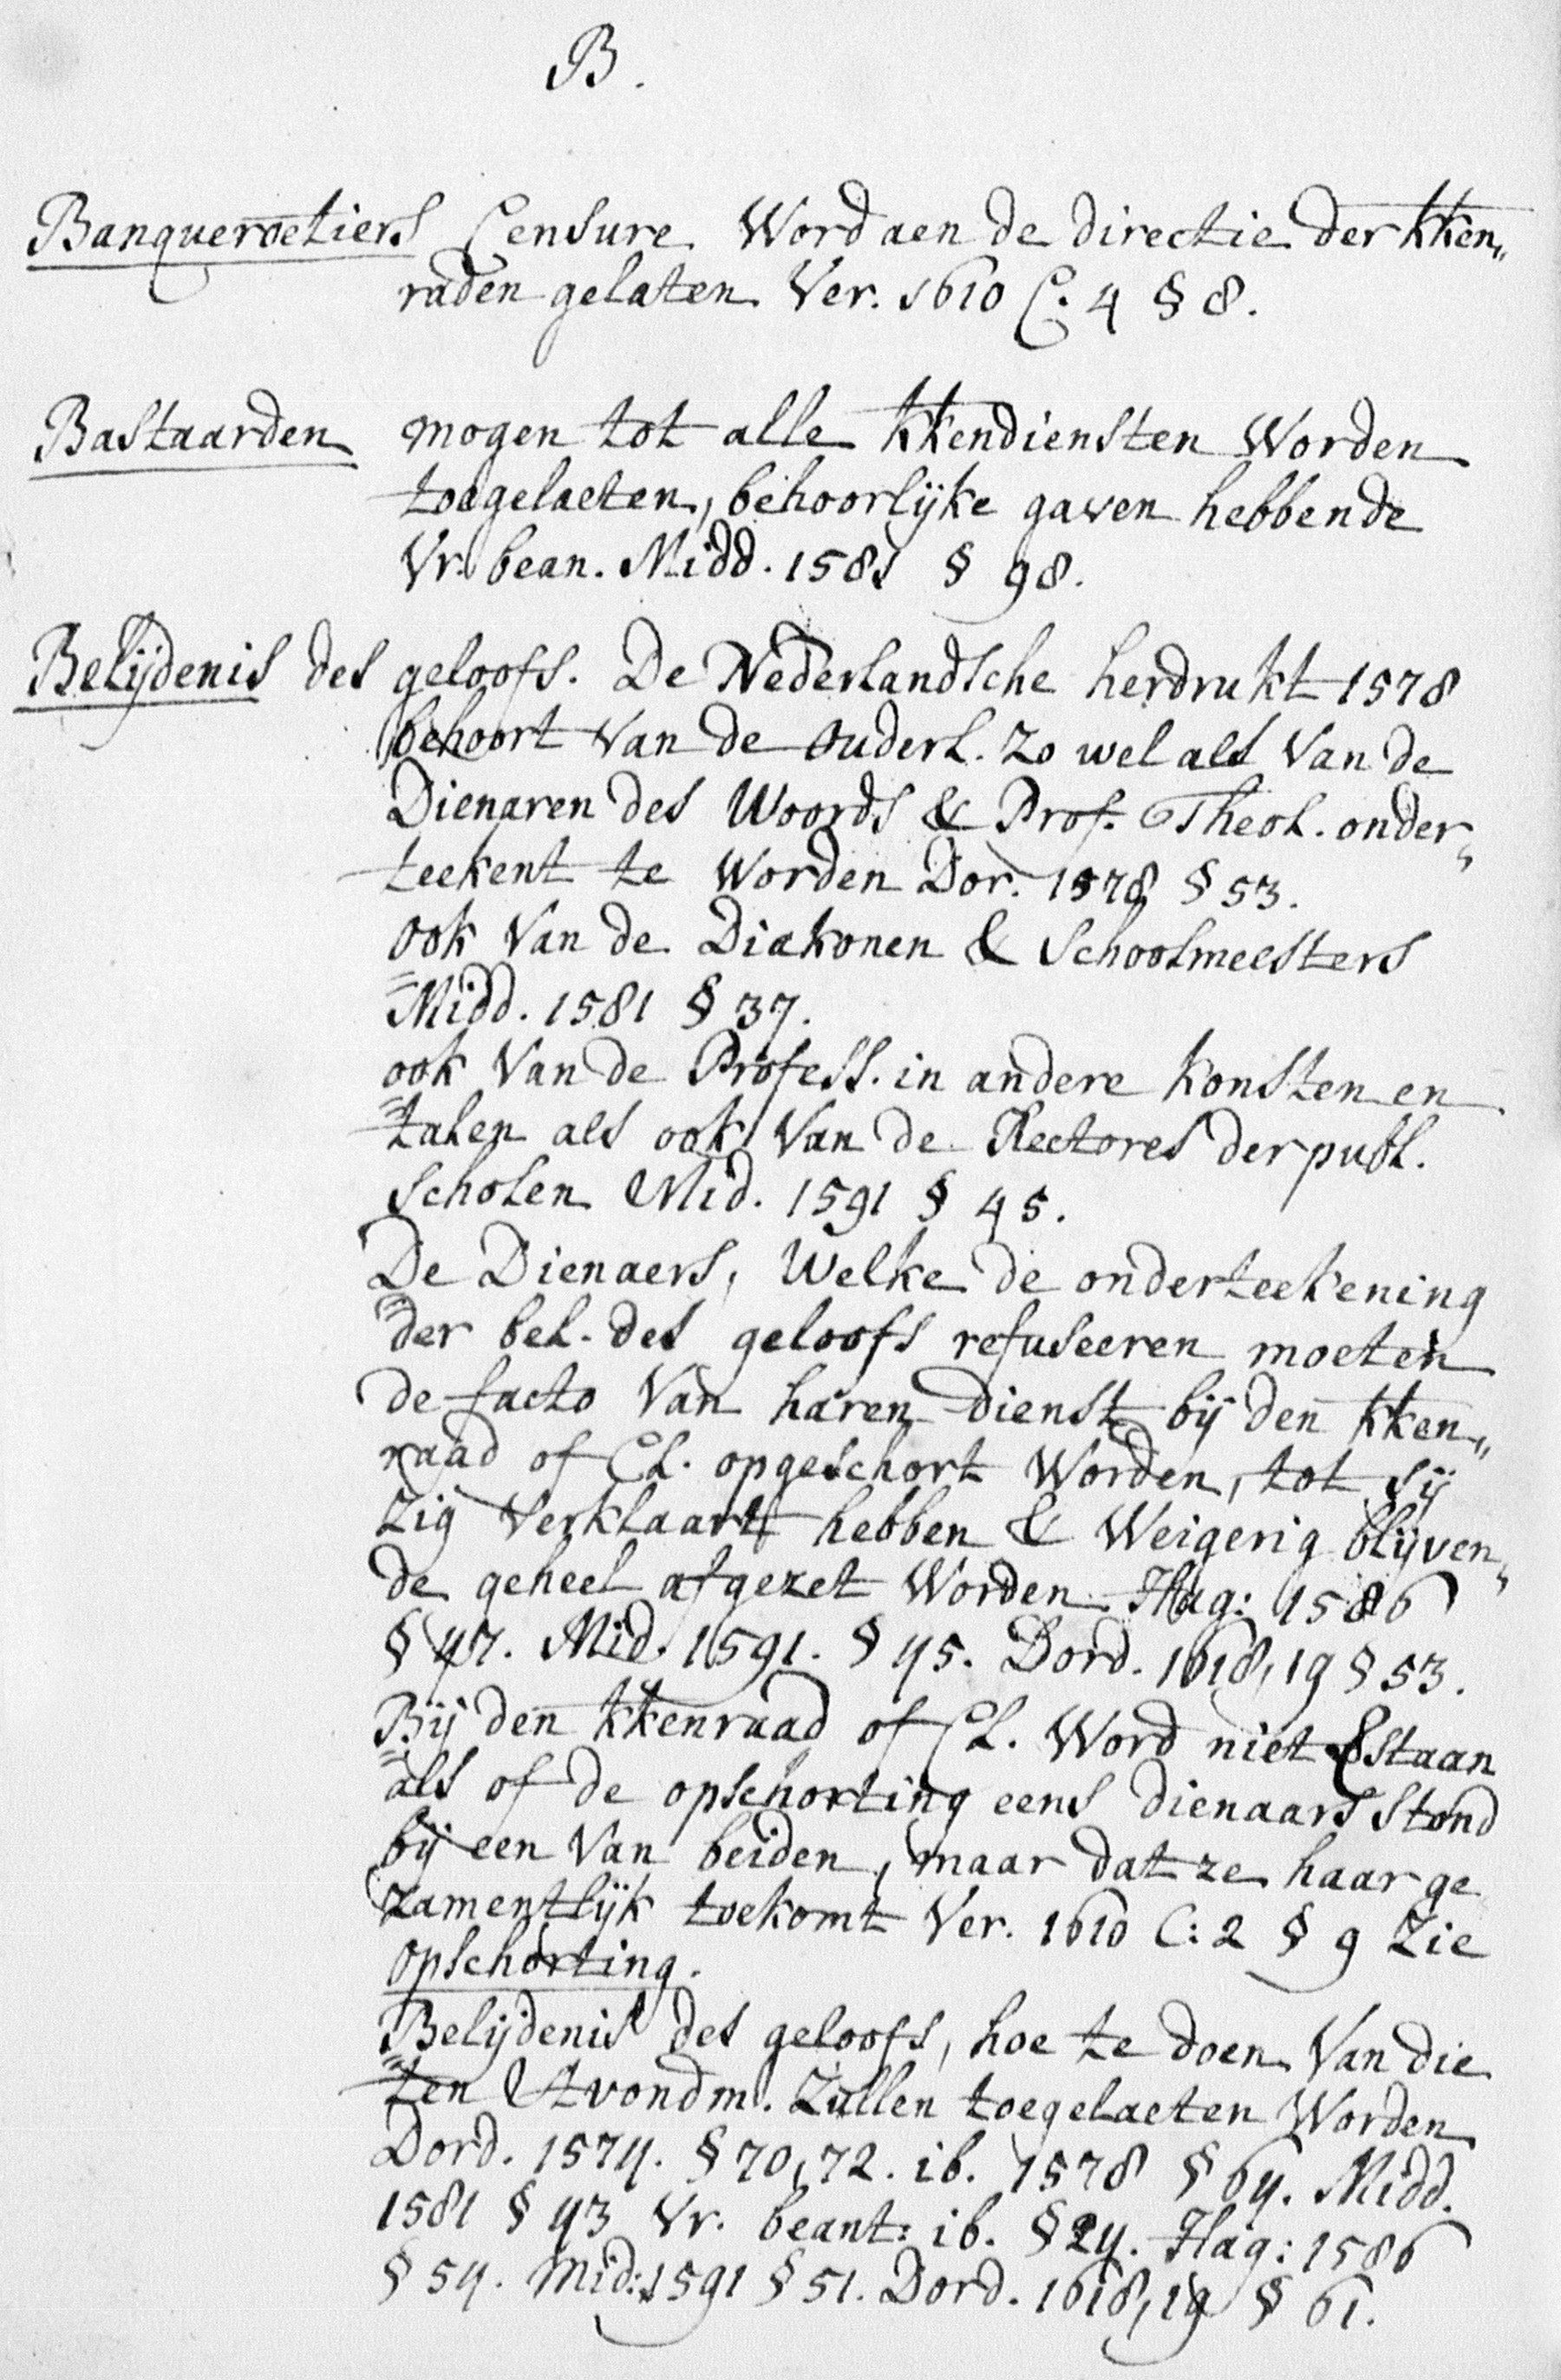 B.
Banqueroetiers Censure Word aen de directie der kken„
raden gelaten Ver. 1610 C. 4 § 8.
Bastaarden mogen tot alle kkendiensten Worden
toegelaeten, behoorlijke gaven hebbende
Vr. bean. Midd. 1581 § 98.
Belijdenis des geloofs. De Nederlandsche herdrukt 1578
behoort van de Ouderl. zo wel als van de
Dienaren des Woords & Prof. Theol. onder„
teekent te Worden Dor. 1578 § 53.
ook Van de Diakonen & Schoolmeesters
Midd. 1581 § 37.
ook Van de Profess. in andere konsten en
talen als ook Van de Rectores der publ.
scholen Mid. 1591 § 45.
De Dienaers, Welke de onderteekening
der bel. des geloofs refuseeren moeten
de facto Van haren dienst bij den kken„
raad of Cl. opgeschort Worden, tot sij
zig verklaart hebben & Weigerig blijven„
de geheel afgezet Worden. Hag: 1586
§ 47. Mid. 1591. § 45. Dord. 1618,19 § 53.
Bij den kkenraad of Cl. Word niet staan
als of de opschorting eens dienaars stond
bij een Van beiden, maar dat ze haar ge
zamentlijk toekomt Ver. 1610 C: 2 § 9 Zie
opschorting.
Belijdenis des geloofs, hoe te doen Van die
ten Avondm. Zullen toegelaeten Worden
Dord. 1574. § 70,72. ib. 1578 § 64. Midd.
1581 § 43 Vr. beant: ib. § 24. Hag: 1586
§ 54. Mid: 1591 § 51. Dord. 1618,19 § 61.